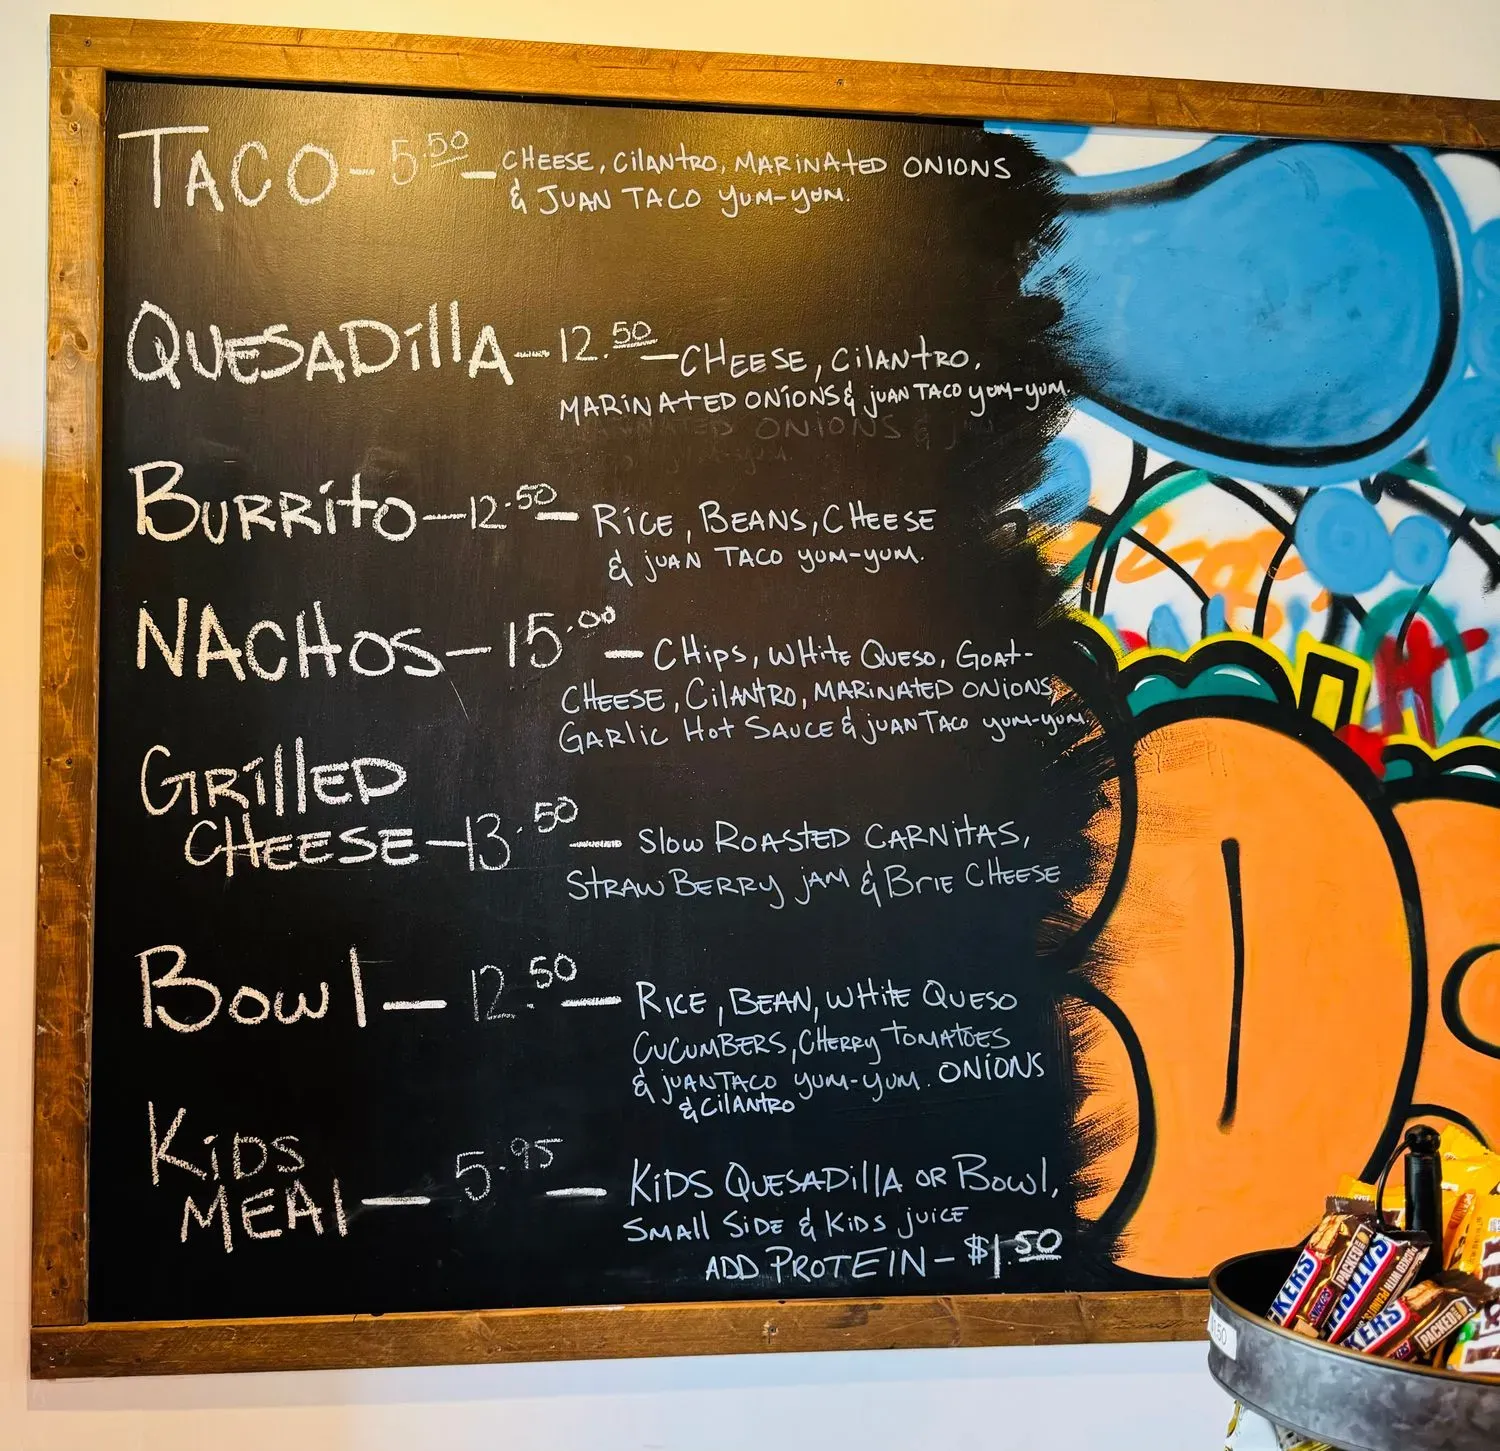 TACO - 5.50 - CHEESE, CILANTRO, MARINATED ONIONS
& JUAN TACO YUM-YUM.
QUESADILLA - 12.50 - CHEESE, CILANTRO,
MARINATED ONIONS & JUAN TACO YUM-YUM.
ONIONS &
BURRITO - 12.50 - RICE, BEANS, CHEESE
& JUAN TACO YUM-YUM.
NACHOS - 15.00 - CHIPS, WHITE QUESO, GOAT-
CHEESE, CILANTRO, MARINATED ONIONS,
GARLIC HOT SAUCE & JUAN TACO YUM-YUM.
GRILLED
CHEESE - 13.50 - SLOW ROASTED CARNITAS,
STRAWBERRY JAM & BRIE CHEESE
BOWL - 12.50 - RICE, BEAN, WHITE QUESO
CUCUMBERS, CHERRY TOMATOES
& JUAN TACO YUM-YUM. ONIONS
& CILANTRO
KIDS
MEAL - 5.95 - KIDS QUESADILLA OR BOWL,
SMALL SIDE & KIDS JUICE
ADD PROTEIN - $1.50